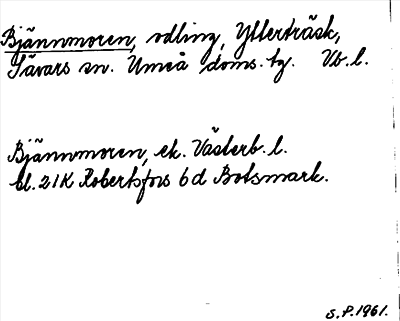 Bjännmoren, odling, Ytterträsk,
Sävars sn. Umeå doms. tg. Vb. l.
Bjännmoren, ek. Västerb. l.
bl. 21K Robertsfors 6d Botsmark.
S.P. 1961.